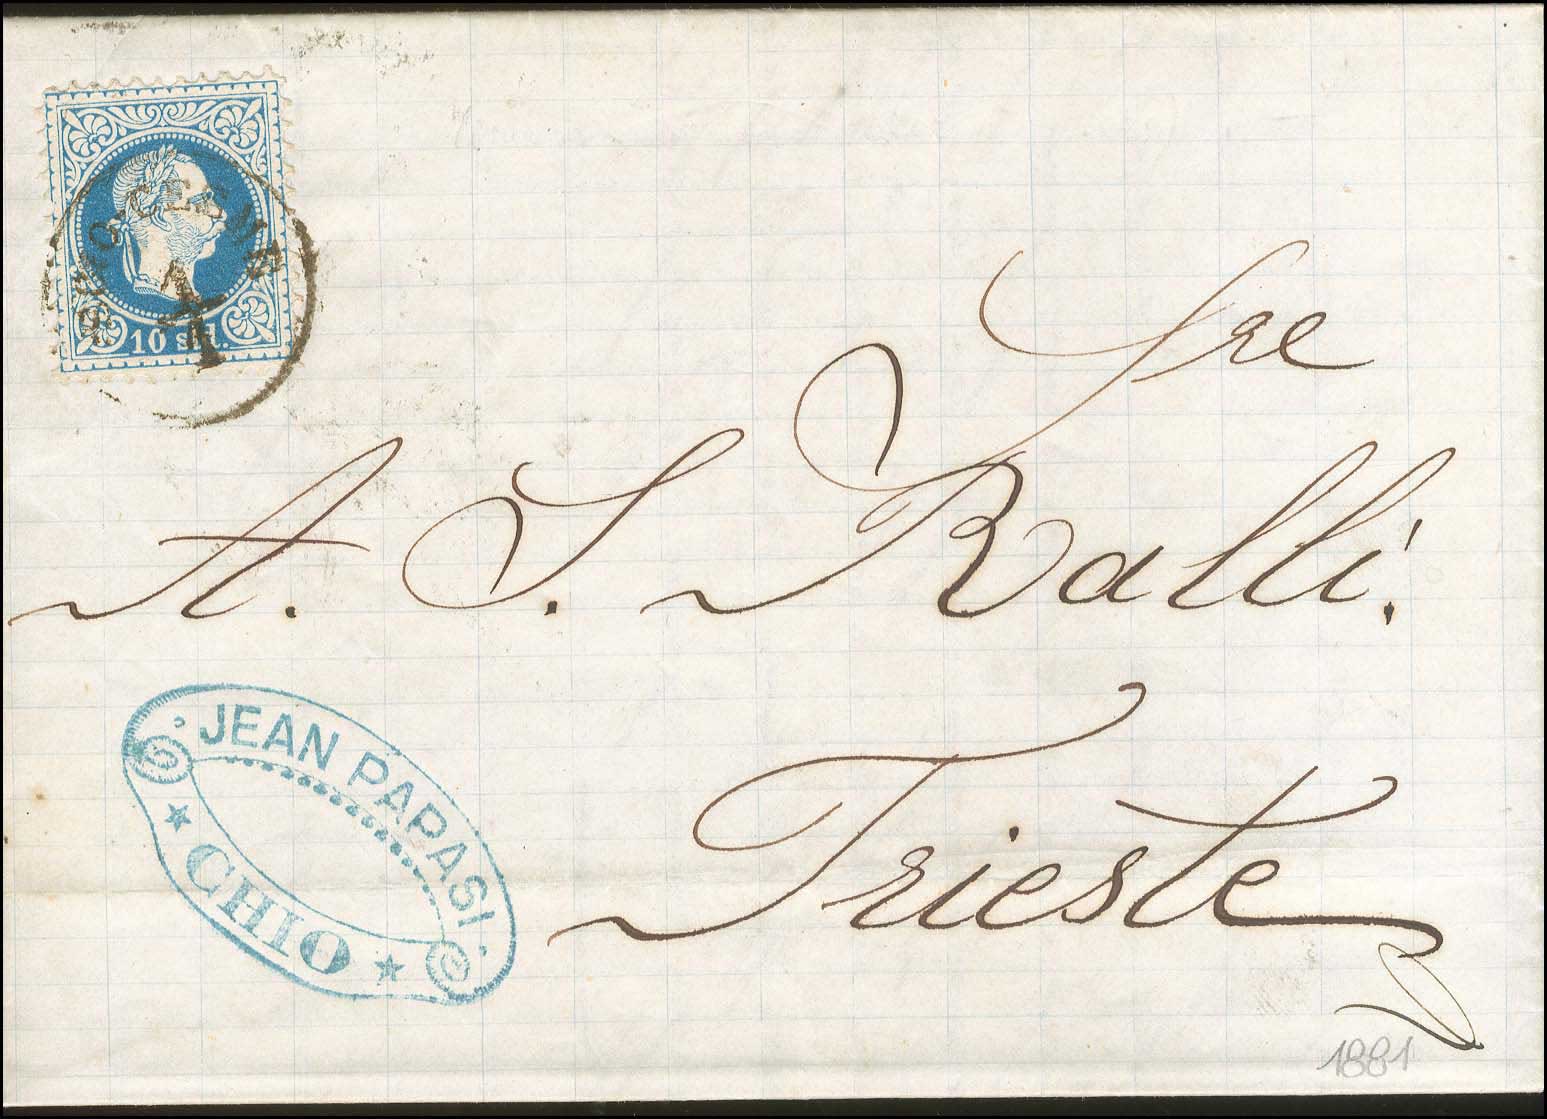 10 sld.
Sre
A. S. Ralli.
Trieste
JEAN PAPASI
CHIO
1881